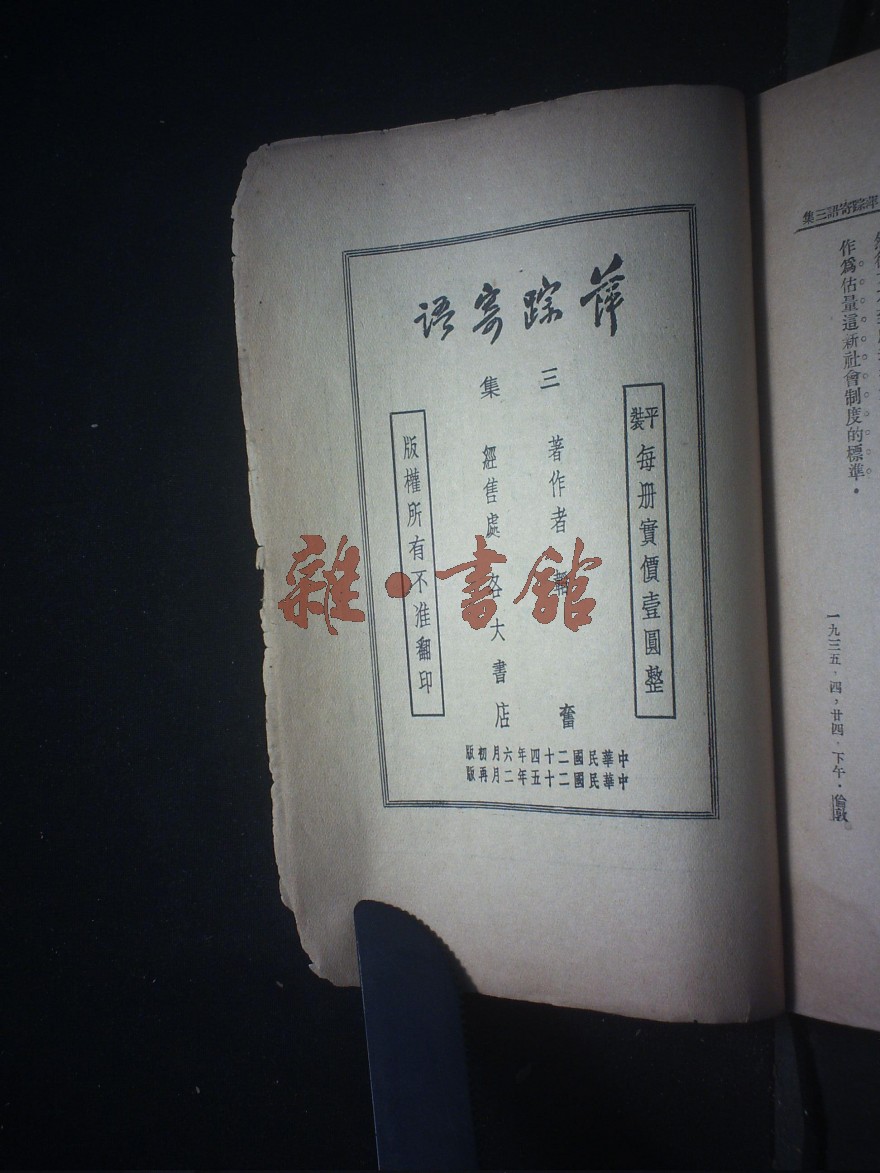 萍踪寄語三集
作爲估量這新社會制度的標準．
一九三五，四，廿四，下午．倫敦
萍踪寄語
三集
平裝每册實價壹圓整
著作者 韜奮
經售處各大書店
版權所有不准翻印
中華民國二十四年六月初版
中華民國二十五年二月再版
雜·書館